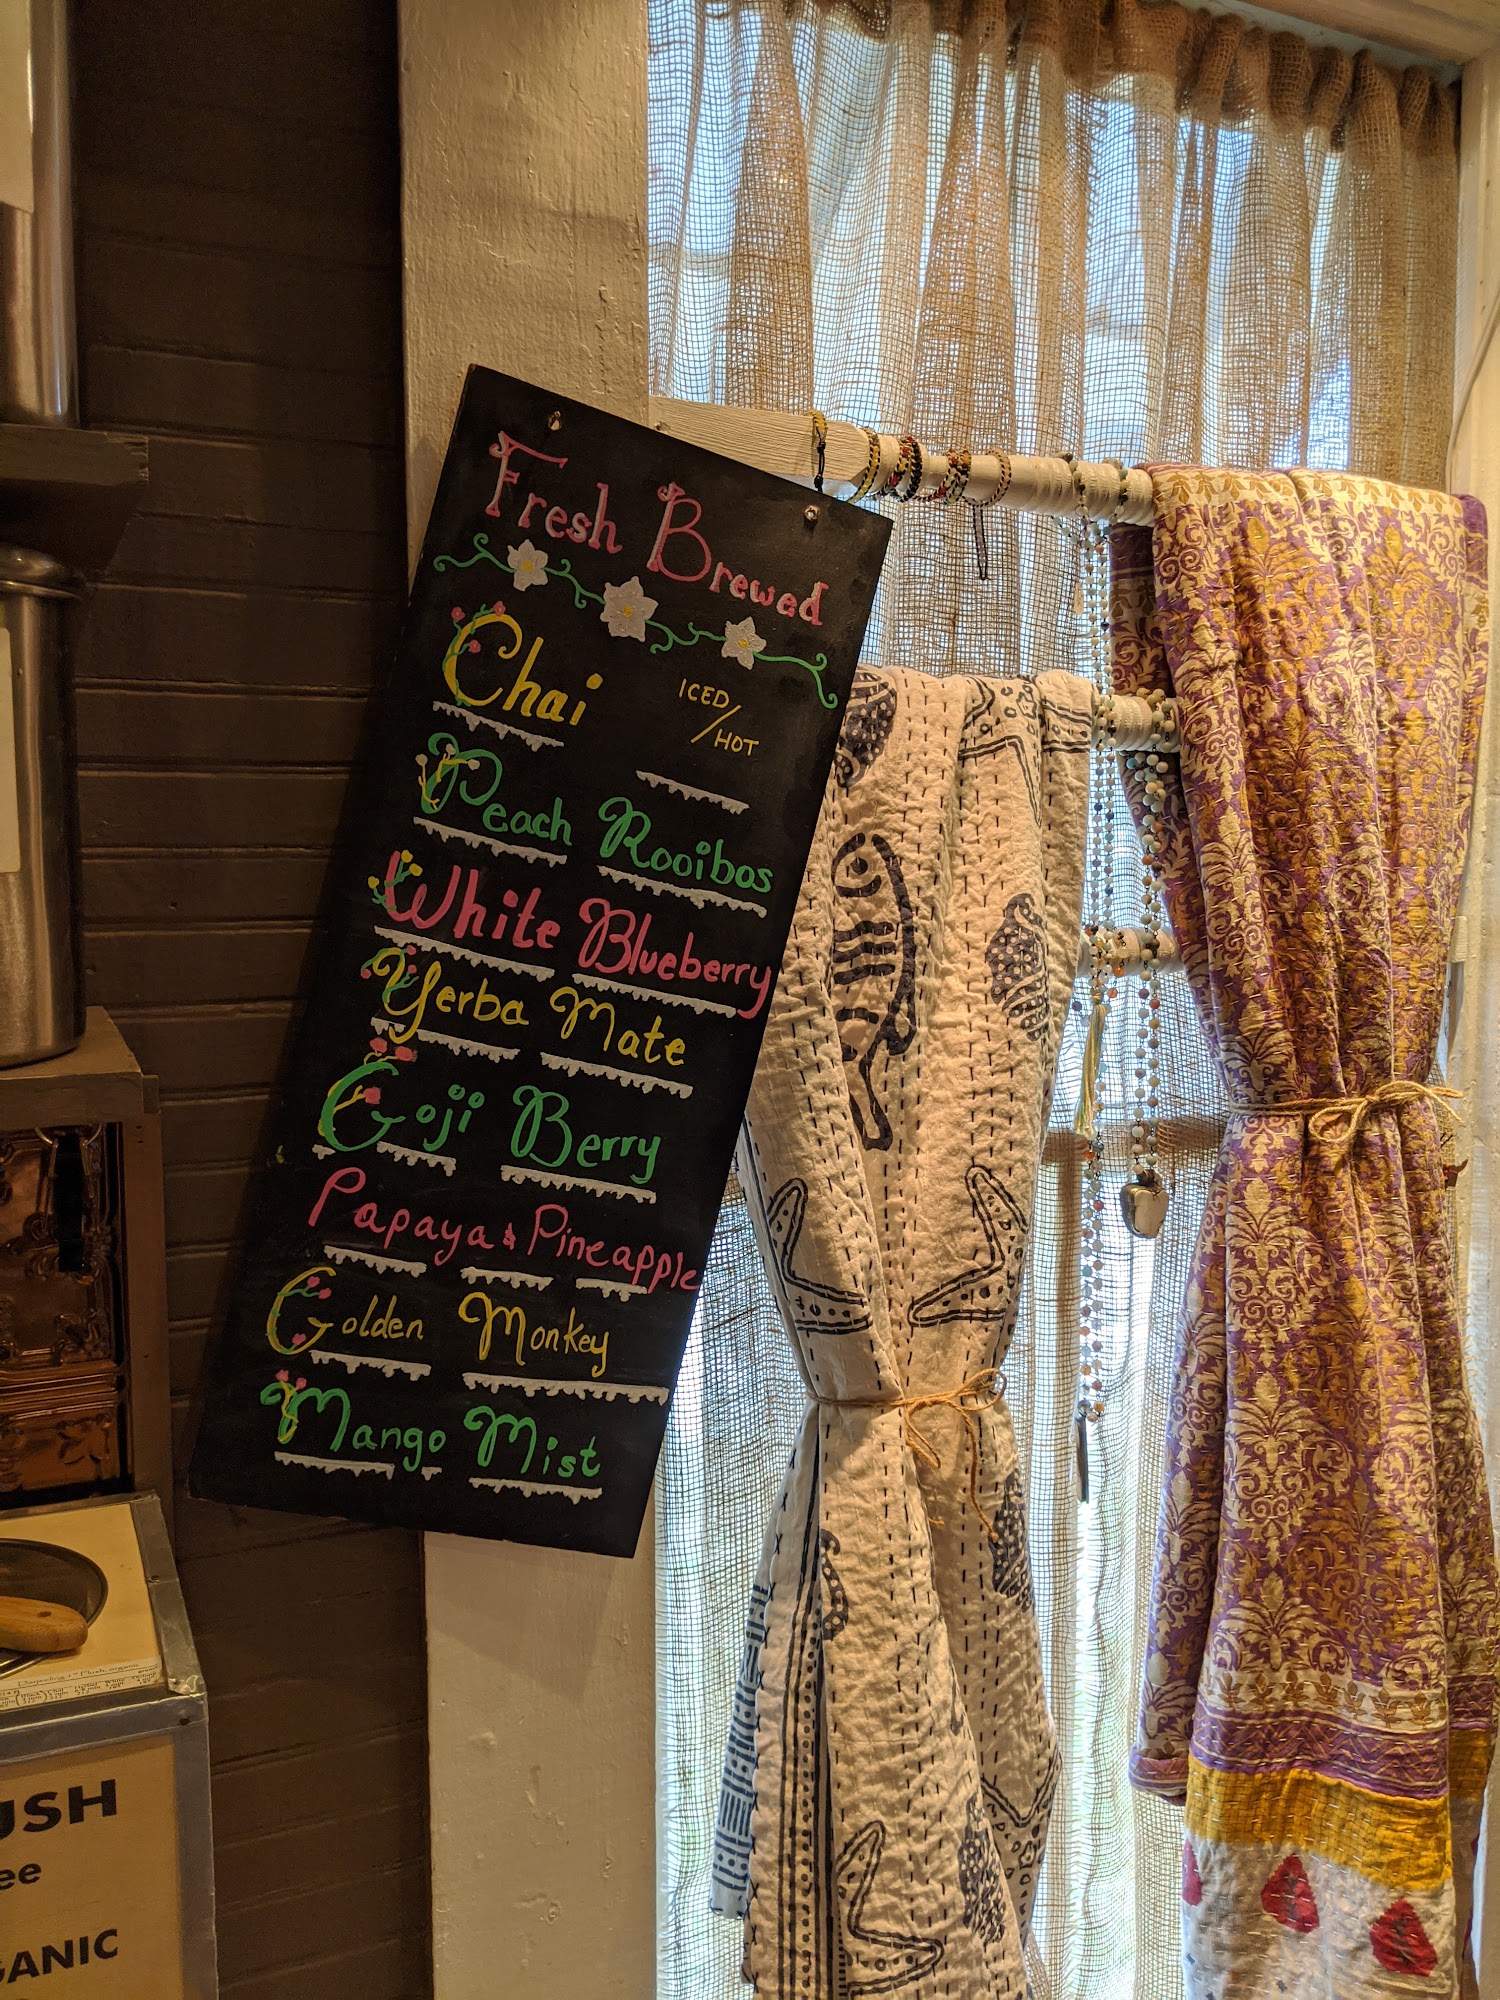 Fresh Brewed
Chai ICED/HOT
Peach Rooibos
White Blueberry
Yerba Mate
Goji Berry
Papaya & Pineapple
Golden Monkey
Mango Mist
USH
ee
GANIC